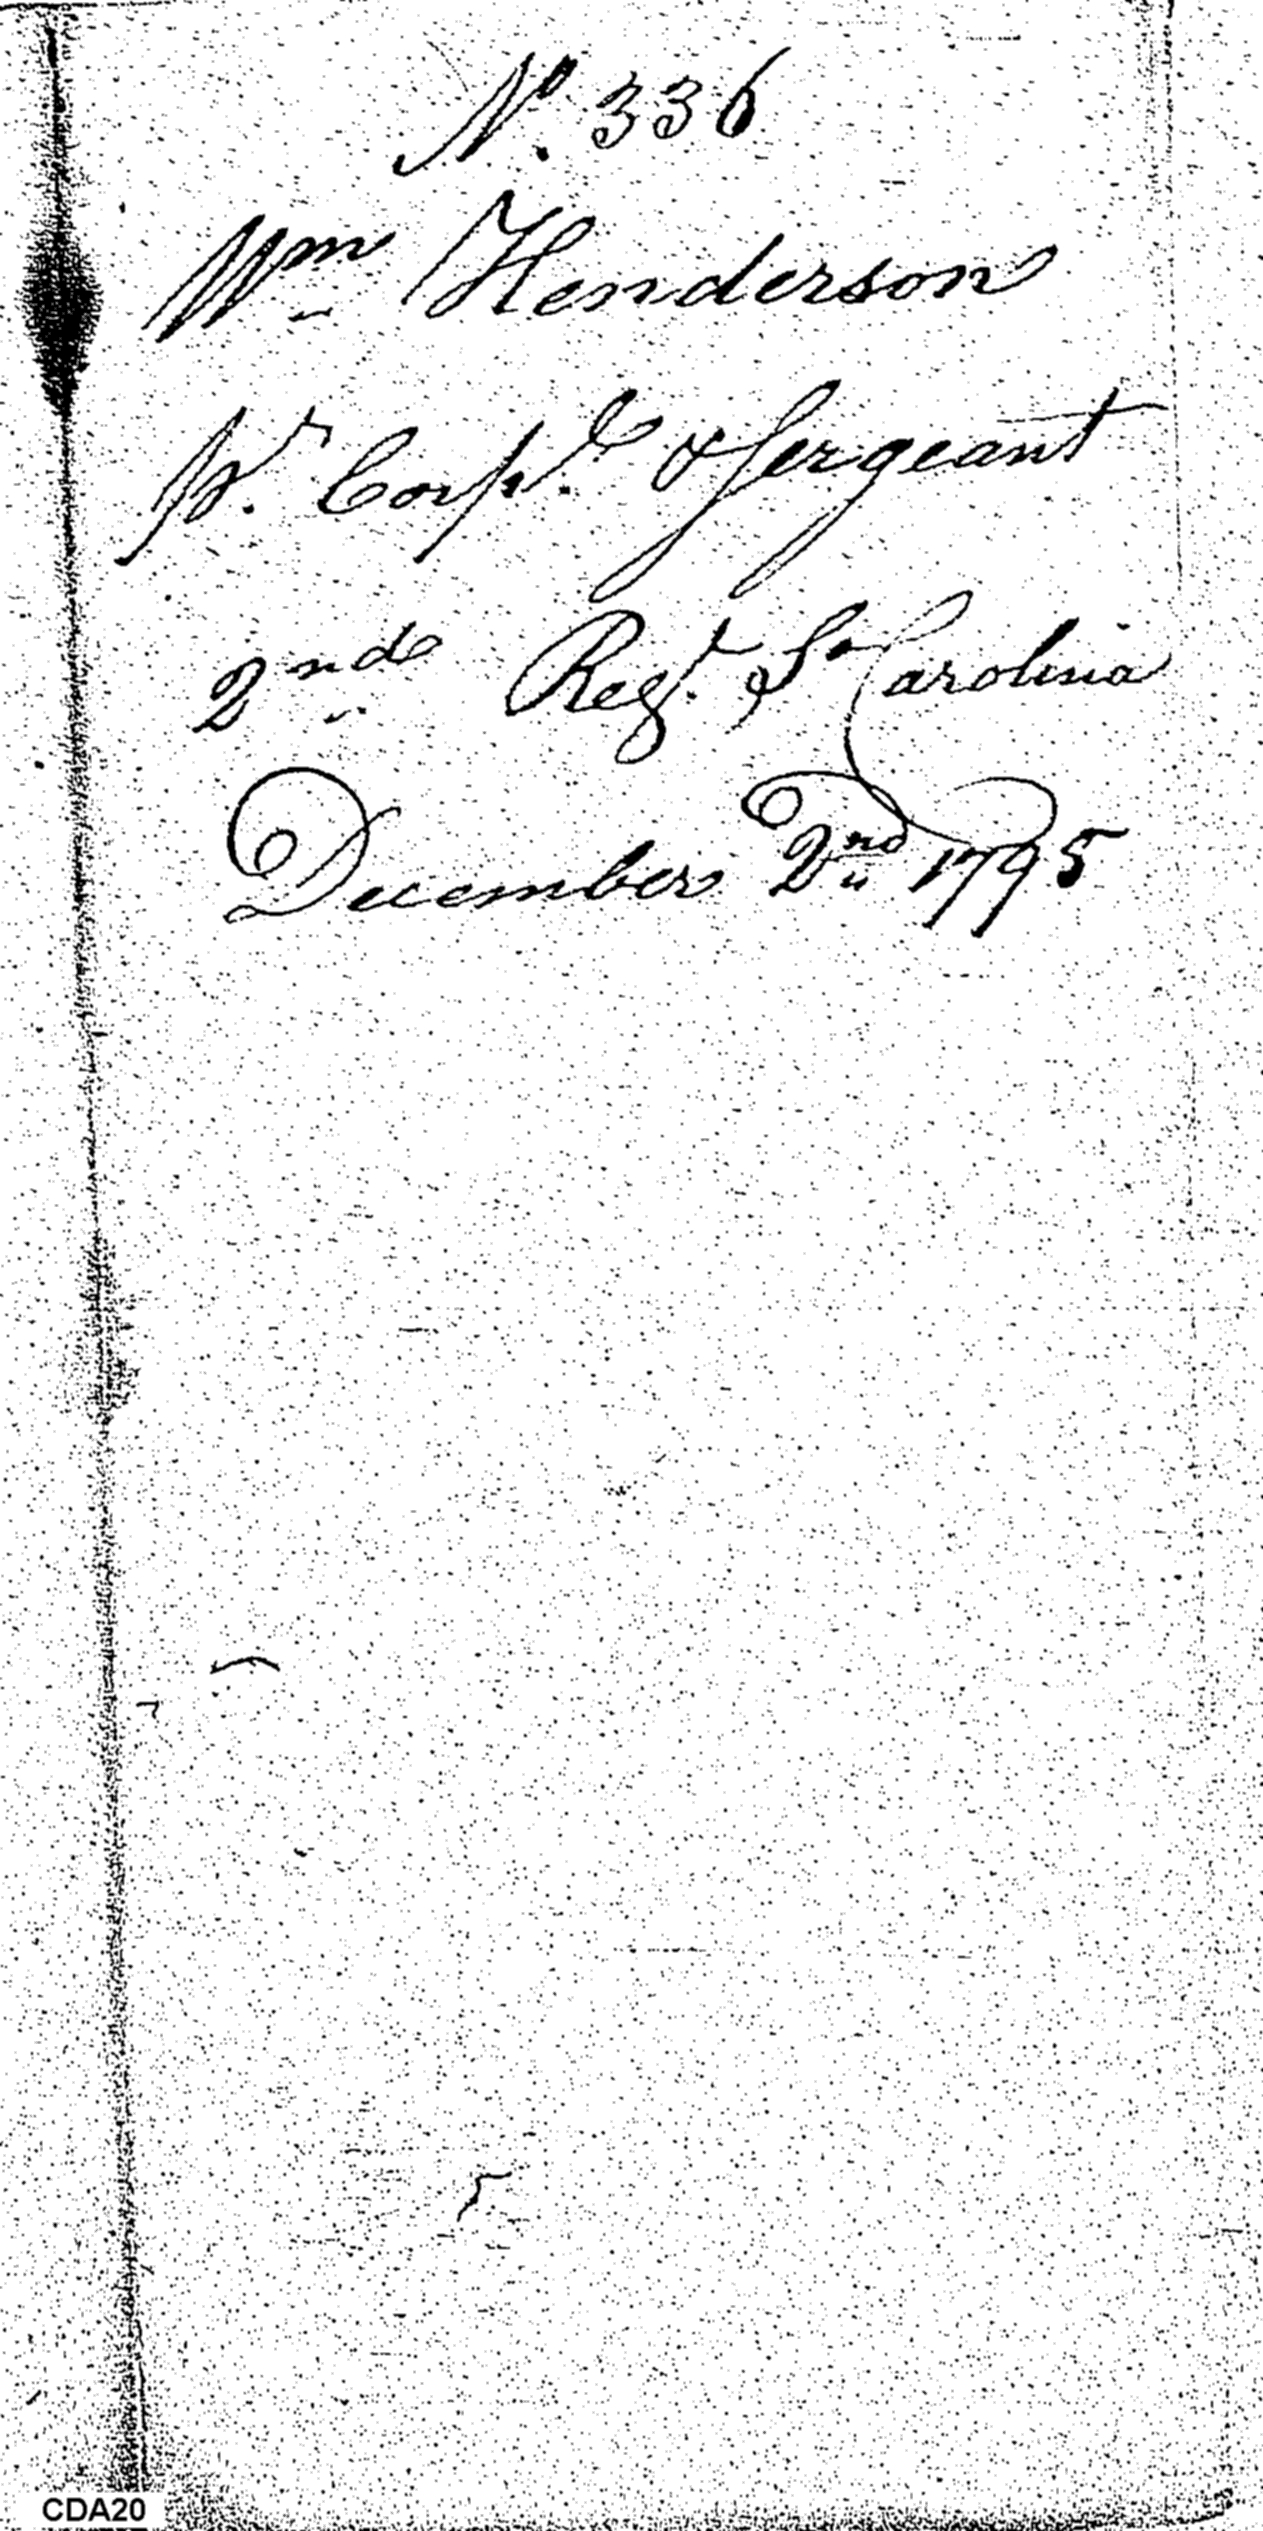 No. 336
Wm Henderson
Pr. Corpl. & Sergeant
2nd Regt. So Carolina
December 2nd 1795
CDA20